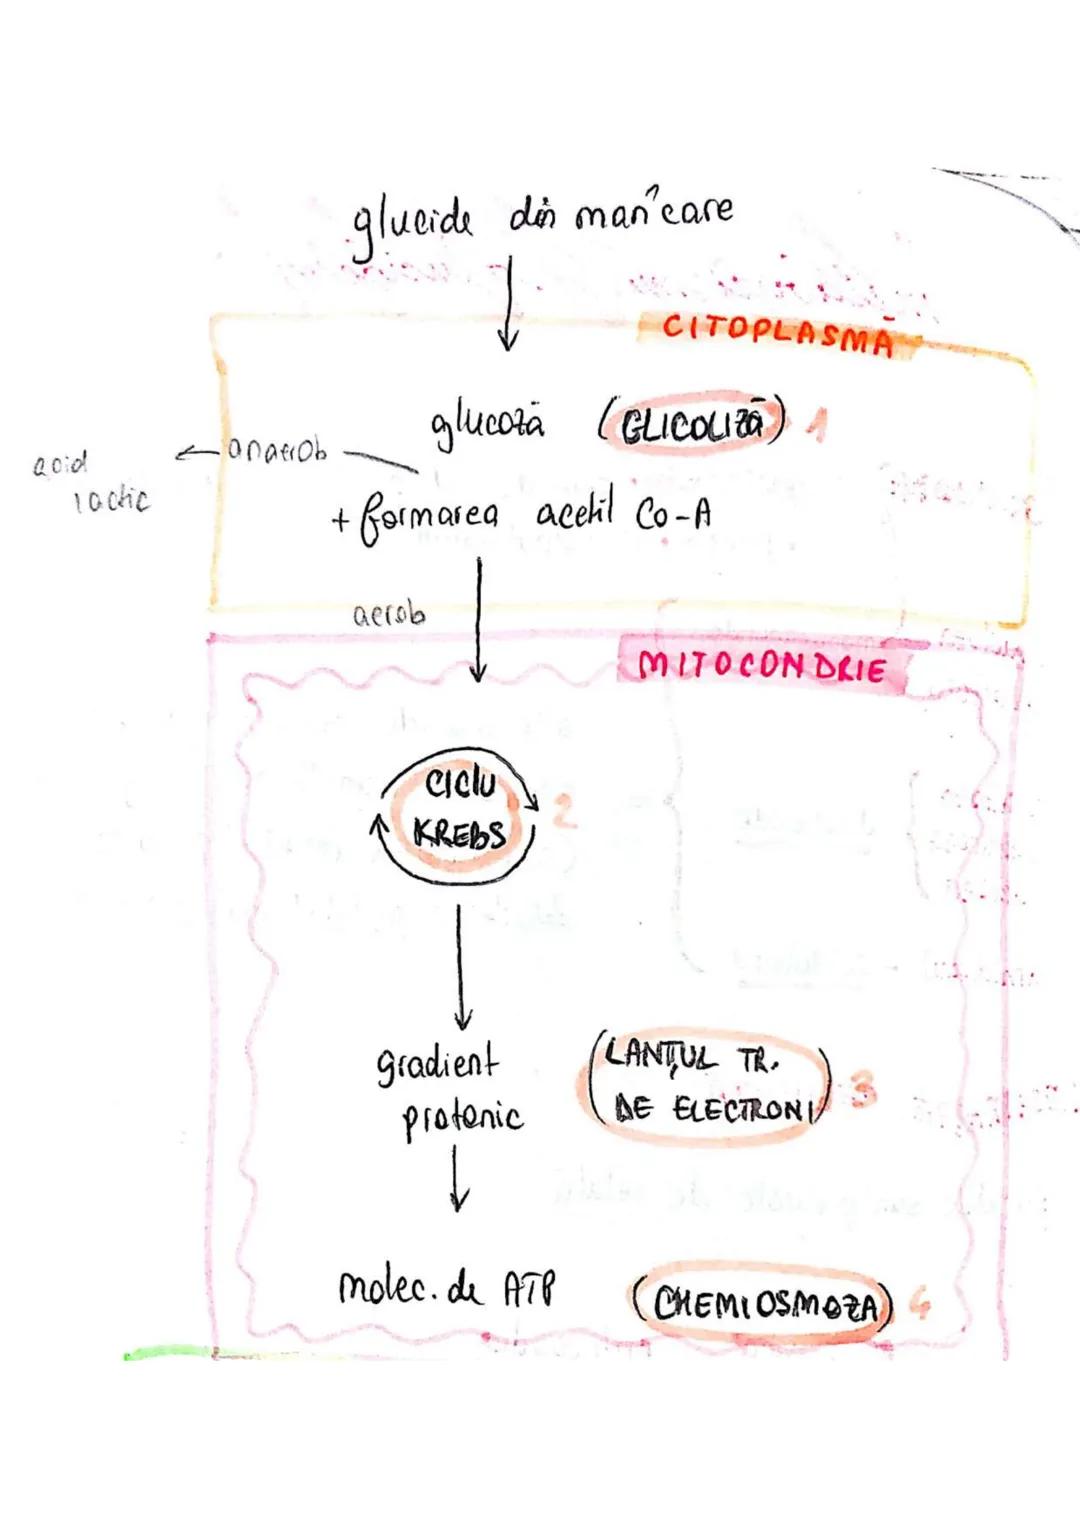 glucide din mâncare
CITOPLASMA
glucoză (GLICOLIZĂ) 1
anaerob
acid
lactic
+ formarea acetil Co-A
aerob
MITOCONDRIE
CICLU
KREBS
2
gradient
protonic
(LANȚUL TR.
DE ELECTRONI)
3
molec. de ATP (CHEMIOSMOZA) 4